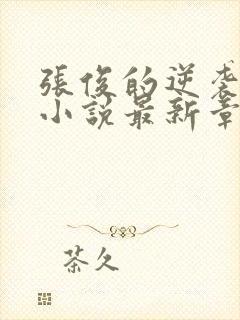 張俊的逆袭
小說最新章
茶久